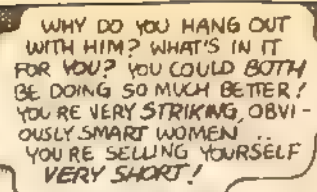 WHY DO YOU HANG OUT
WITH HIM? WHAT'S IN IT
FOR YOU? YOU COULD BOTH
BE DOING SO MUCH BETTER!
YOU'RE VERY STRIKING, OBVI-
OUSLY SMART WOMEN ..
YOU'RE SELLING YOURSELF
VERY SHORT!